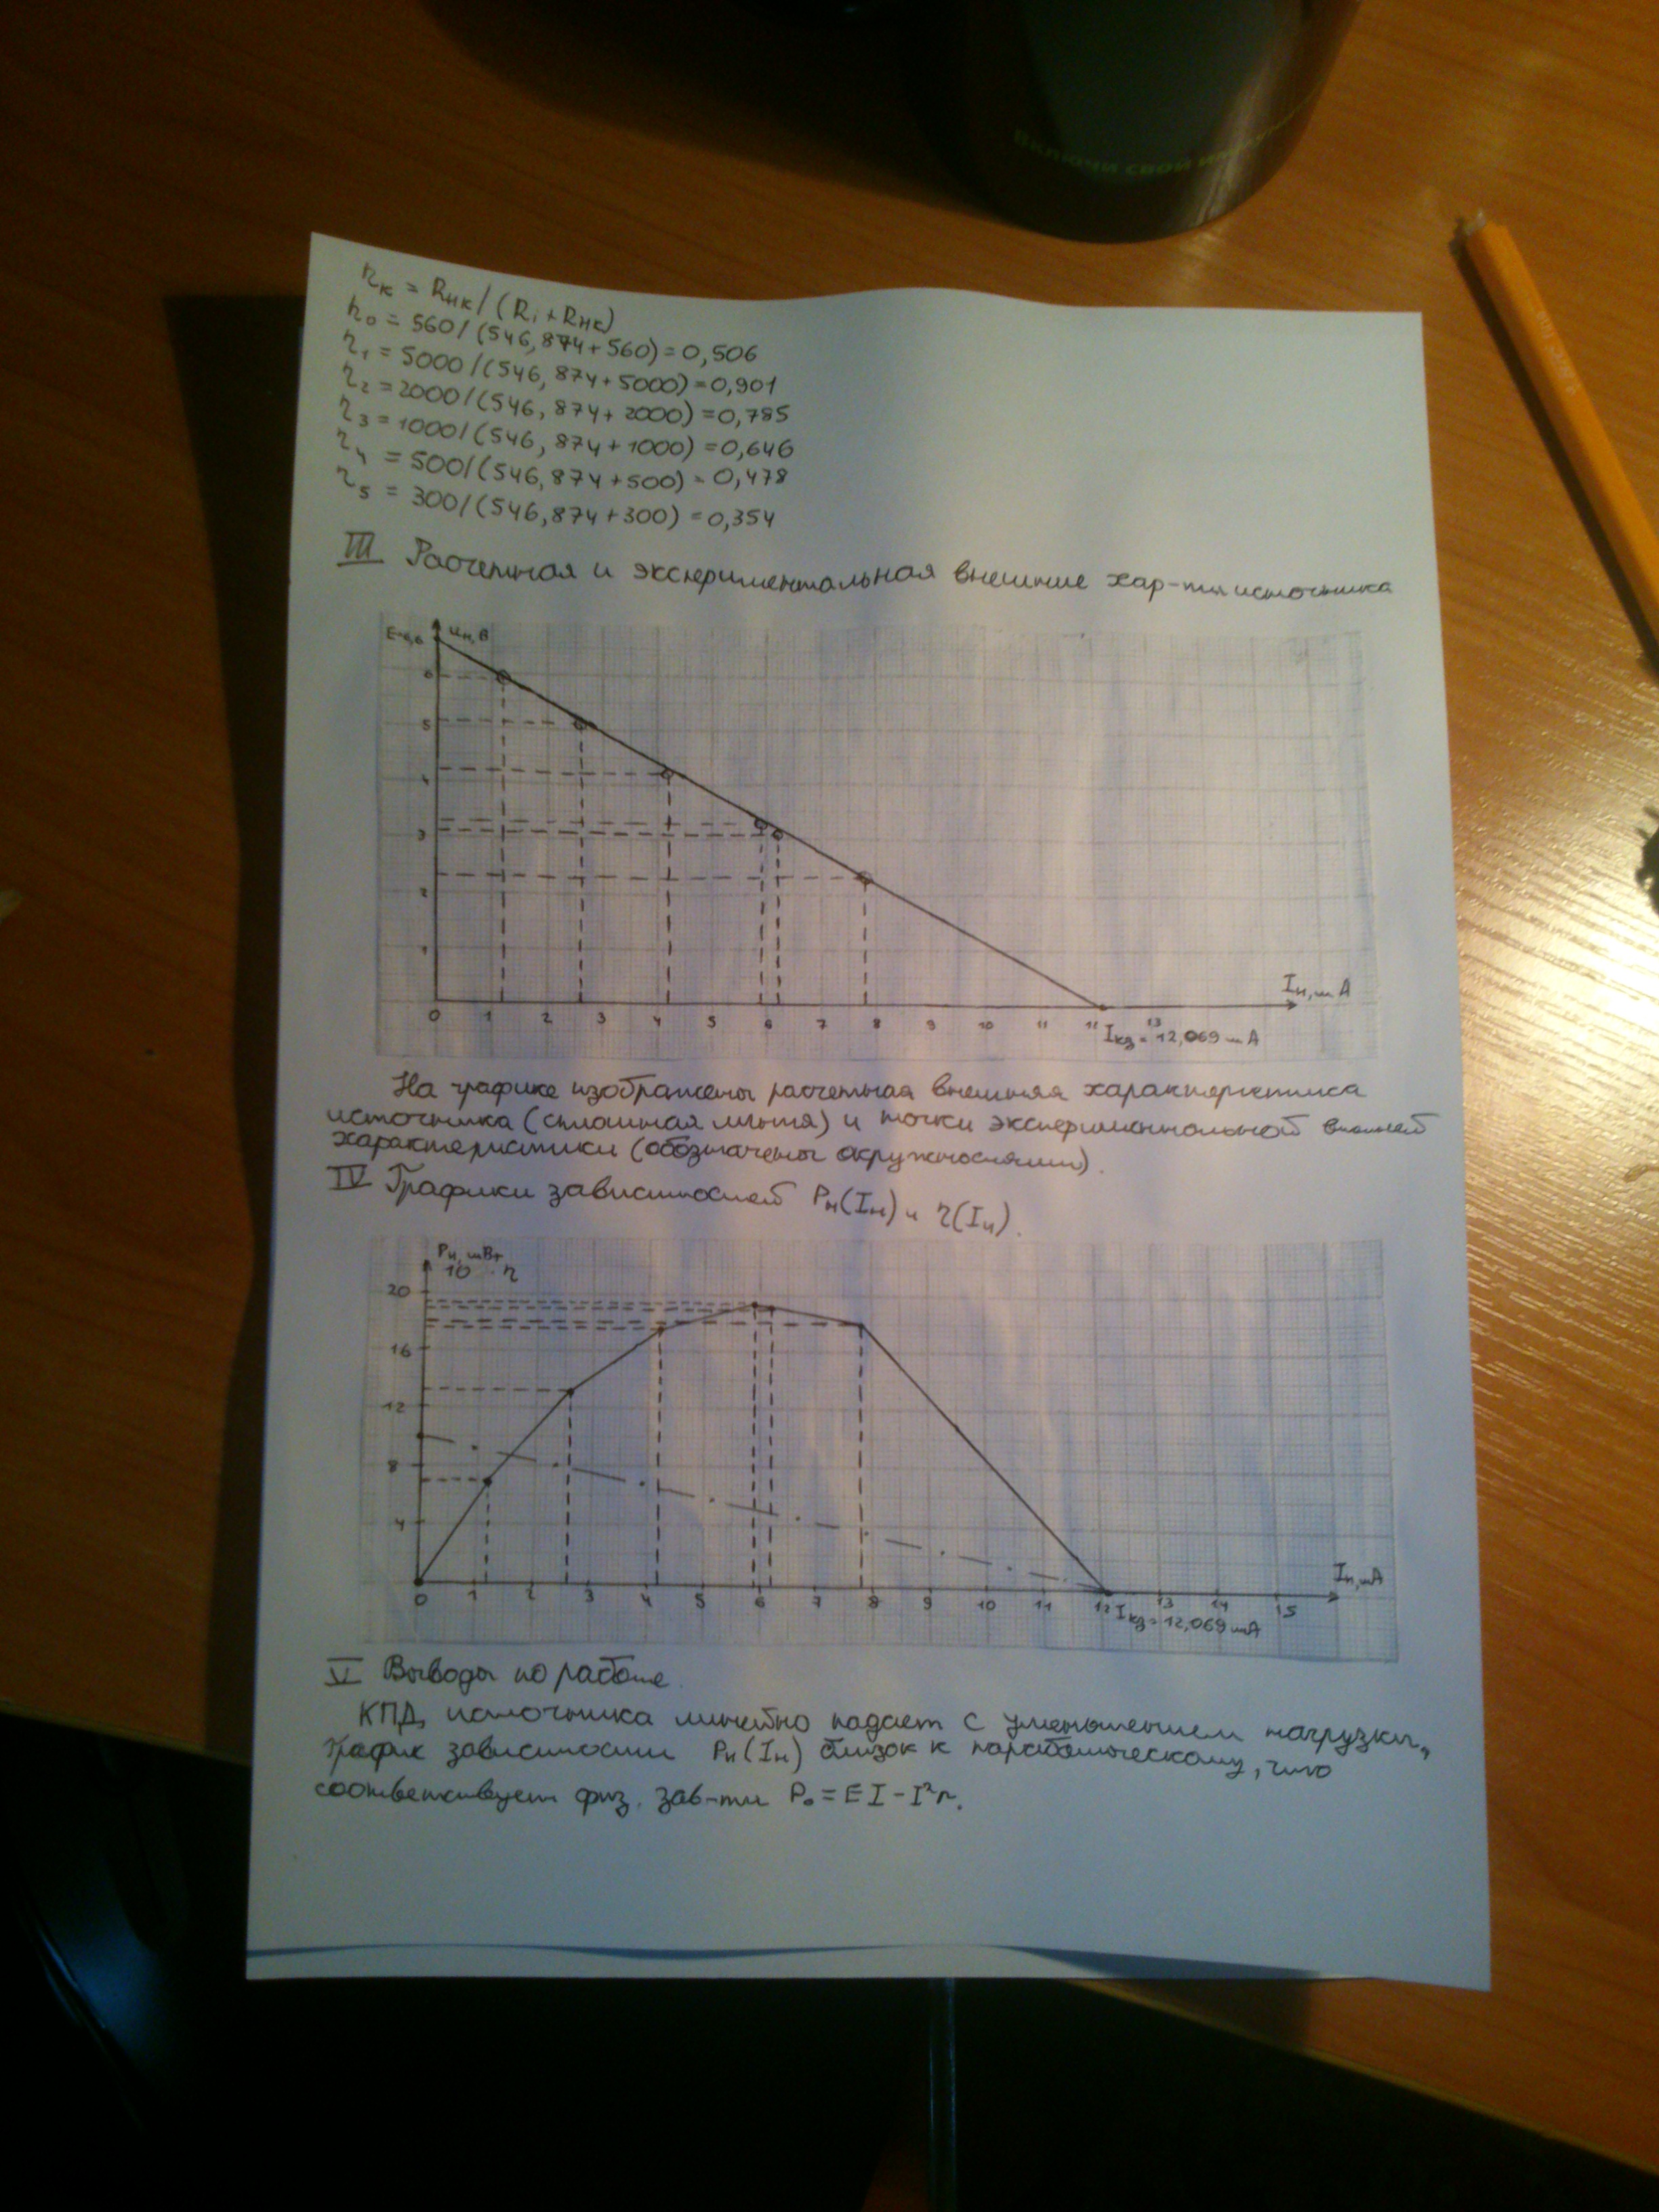 Включи свой
η_к = R_нк / (R_i + R_нк)
η_0 = 560 / (546,874 + 560) = 0,506
η_1 = 5000 / (546,874 + 5000) = 0,901
η_2 = 2000 / (546,874 + 2000) = 0,785
η_3 = 1000 / (546,874 + 1000) = 0,646
η_4 = 500 / (546,874 + 500) = 0,478
η_5 = 300 / (546,874 + 300) = 0,354
III Расчетная и экспериментальная внешние хар-ки источника
E=6,6 U_н, В
6
5
4
3
2
1
0 1 2 3 4 5 6 7 8 9 10 11 11 13
I_н, mA
I_кз = 12,069 mA
На графике изображены расчетная внешняя характеристика
источника (сплошная линия) и точки экспериментальной внешней
характеристики (обозначены окружностями).
IV Графики зависимостей P_н(I_н) и η(I_н).
P_н, mВт
10 · η
20
16
12
8
4
0 1 2 3 4 5 6 7 8 9 10 11 12 13 14 15
I_н, mA
I_кз = 12,069 mA
V Выводы по работе.
КПД источника линейно падает с уменьшением нагрузки,
график зависимости P_н(I_н) близок к параболическому, что
соответствует физ. зав-ти P_0 = EI - I²r.